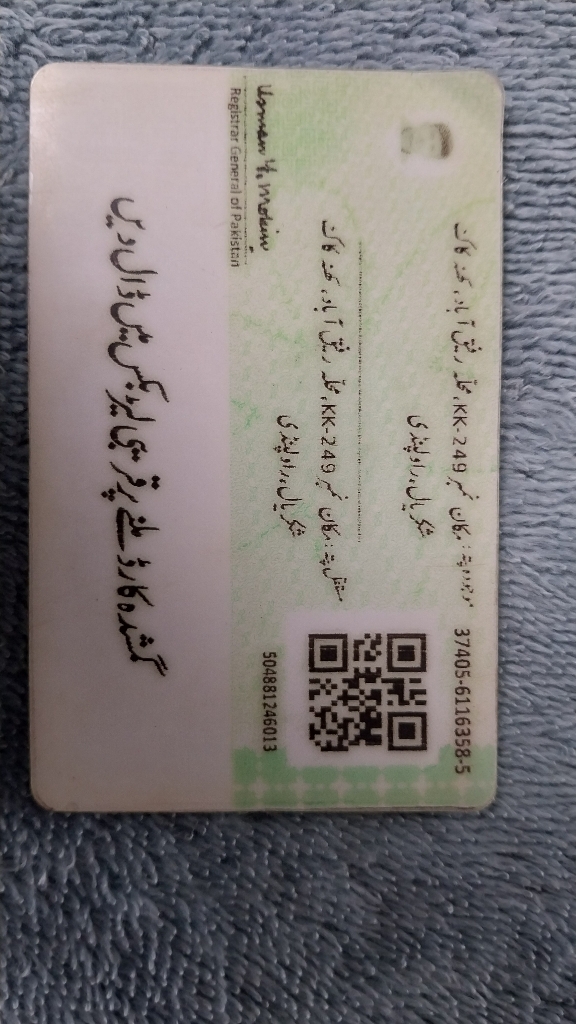 37405-6116358-5
موجودہ پتہ: مکان نمبر KK-249، محلہ رفیق آباد، کھنہ کاک
شکریال، راولپنڈی
مستقل پتہ: مکان نمبر KK-249، محلہ رفیق آباد، کھنہ کاک
شکریال، راولپنڈی
504881246013
Usman Y. Mobin
Registrar General of Pakistan
گمشدہ کارڈ ملنے پر قریبی لیٹر بکس میں ڈال دیں